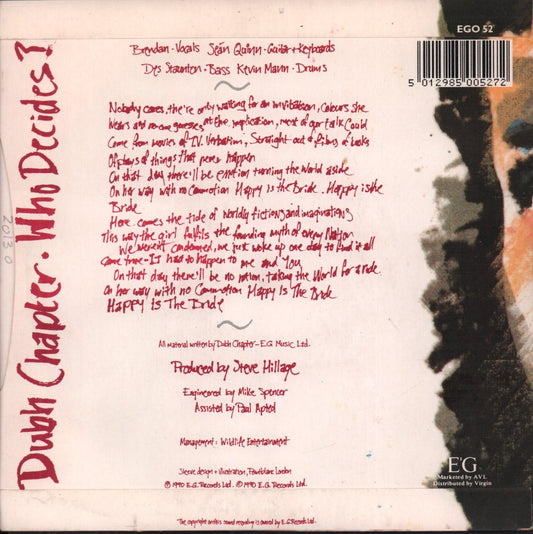 Dubh Chapter. Who Decides?
20130
Brendan - Vocals Seán Quinn - Guitar + Keyboards
Des Staunton - Bass Kevin Mann - Drums
Nobody cares, the're only waiting for an invitation, Colours she
Wears and no-one guesses, at the implication, most of our talk Could
Come from movies of T.V. Verbatim, Straight out of films of books
Of plays of things that never happen
On that day there'll be emotion turning the World aside
On her way with no Commotion Happy is the Bride. Happy is the
Bride
Here comes the tide of worldly fictions and imaginations
This way the girl fulfils the founding myth of every Nation
We weren't condemned, we just woke up one day to find it all
Come true - It had to happen to me and You
On that day there'll be no nation, taking the World for a ride.
On her way with no Commotion Happy Is The Bride
Happy Is The Bride
All material written by Dubh Chapter - E.G. Music Ltd.
Produced by Steve Hillage
Engineered by Mike Spencer
Assisted by Paul Apted
Management: Wildlife Entertainment
Sleeve design + illustration, Pawblanc London
℗ 1990 E.G. Records Ltd. © 1990 E.G. Records Ltd.
The copyright on this sound recording is owned by E.G. Records Ltd.
EGO 52
5 012985 005272
E'G
Marketed by AVL
Distributed by Virgin